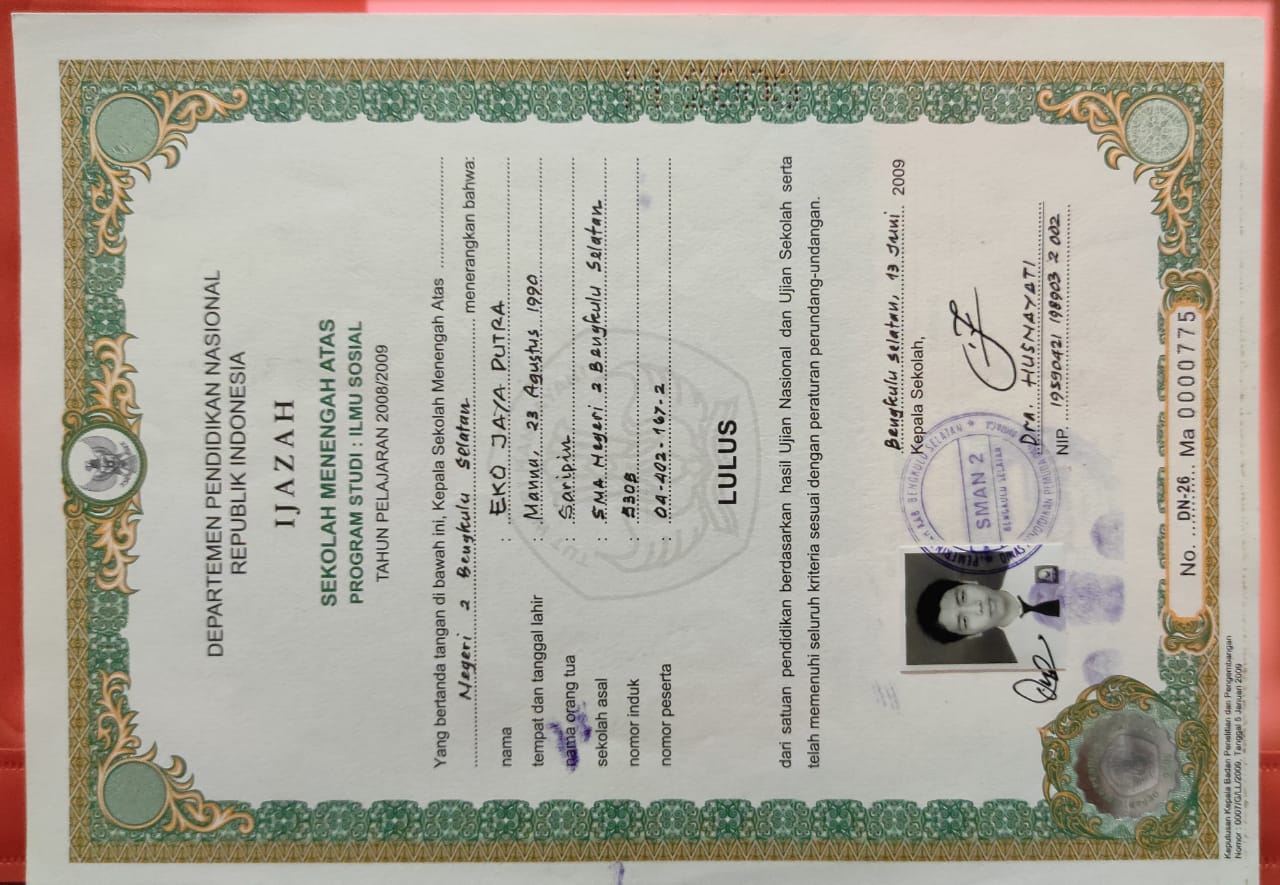 DEPARTEMEN PENDIDIKAN NASIONAL
REPUBLIK INDONESIA
IJAZAH
SEKOLAH MENENGAH ATAS
PROGRAM STUDI : ILMU SOSIAL
TAHUN PELAJARAN 2008/2009
Yang bertanda tangan di bawah ini, Kepala Sekolah Menengah Atas
Negeri 2 Bengkulu Selatan menerangkan bahwa:
nama : EKO JAYA PUTRA
tempat dan tanggal lahir : Manna, 23 Agustus 1990
nama orang tua : Saripin
sekolah asal : SMA Negeri 2 Bengkulu Selatan
nomor induk : 3308
nomor peserta : 04-402-167-2
LULUS
dari satuan pendidikan berdasarkan hasil Ujian Nasional dan Ujian Sekolah serta
telah memenuhi seluruh kriteria sesuai dengan peraturan perundang-undangan.
Bengkulu Selatan, 13 Juni 2009
Kepala Sekolah,
SMAN 2
BENGKULU SELATAN
Dra. HUSNAYATI
NIP. 19590421 198903 2 002
No. DN-26 Ma 0000775
Keputusan Kepala Badan Penelitian dan Pengembangan
Nomor : 0007/G/LL/2009, Tanggal 5 Januari 2009